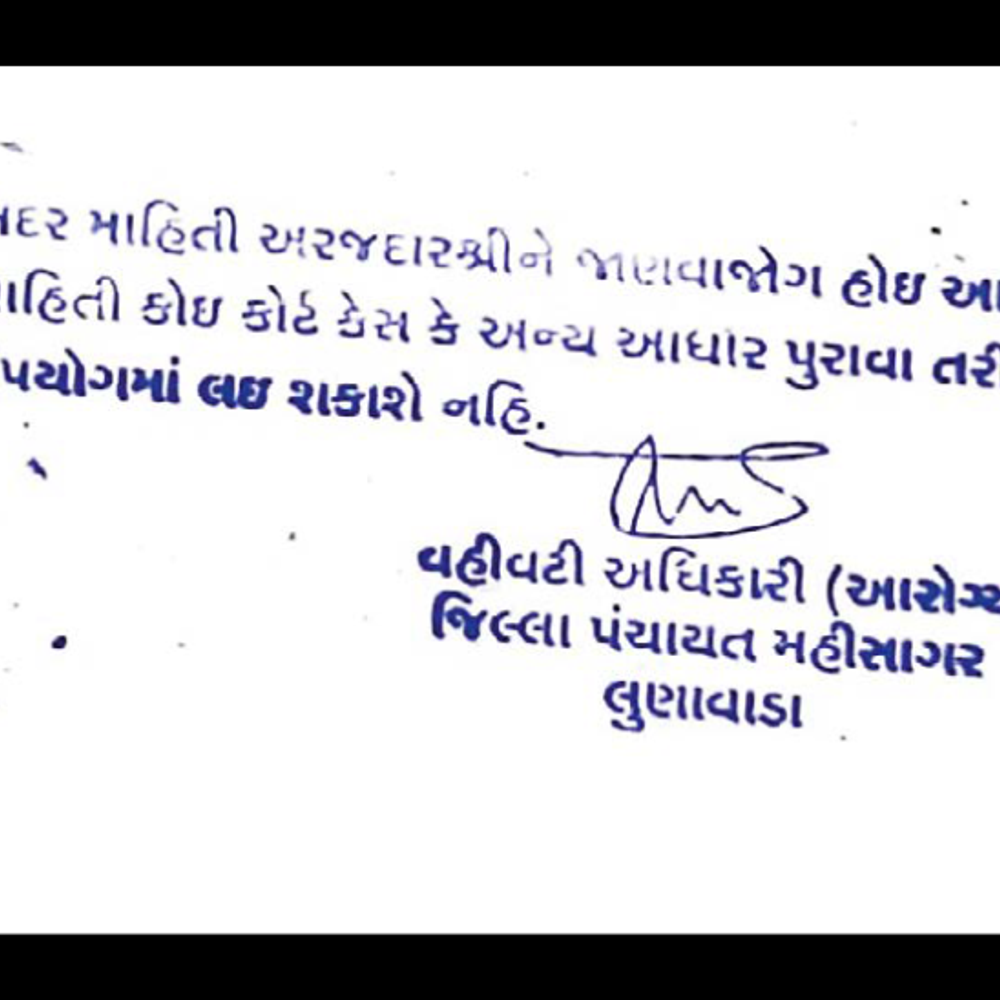 દર માહિતી અરજદારશ્રીને જાણવાજોગ હોઇ આ
ાહિતી કોઇ કોર્ટ કેસ કે અન્ય આધાર પુરાવા તરી
પયોગમાં લઇ શકાશે નહિ.
વહીવટી અધિકારી (આરોગ્ય
જિલ્લા પંચાયત મહીસાગર
લુણાવાડા